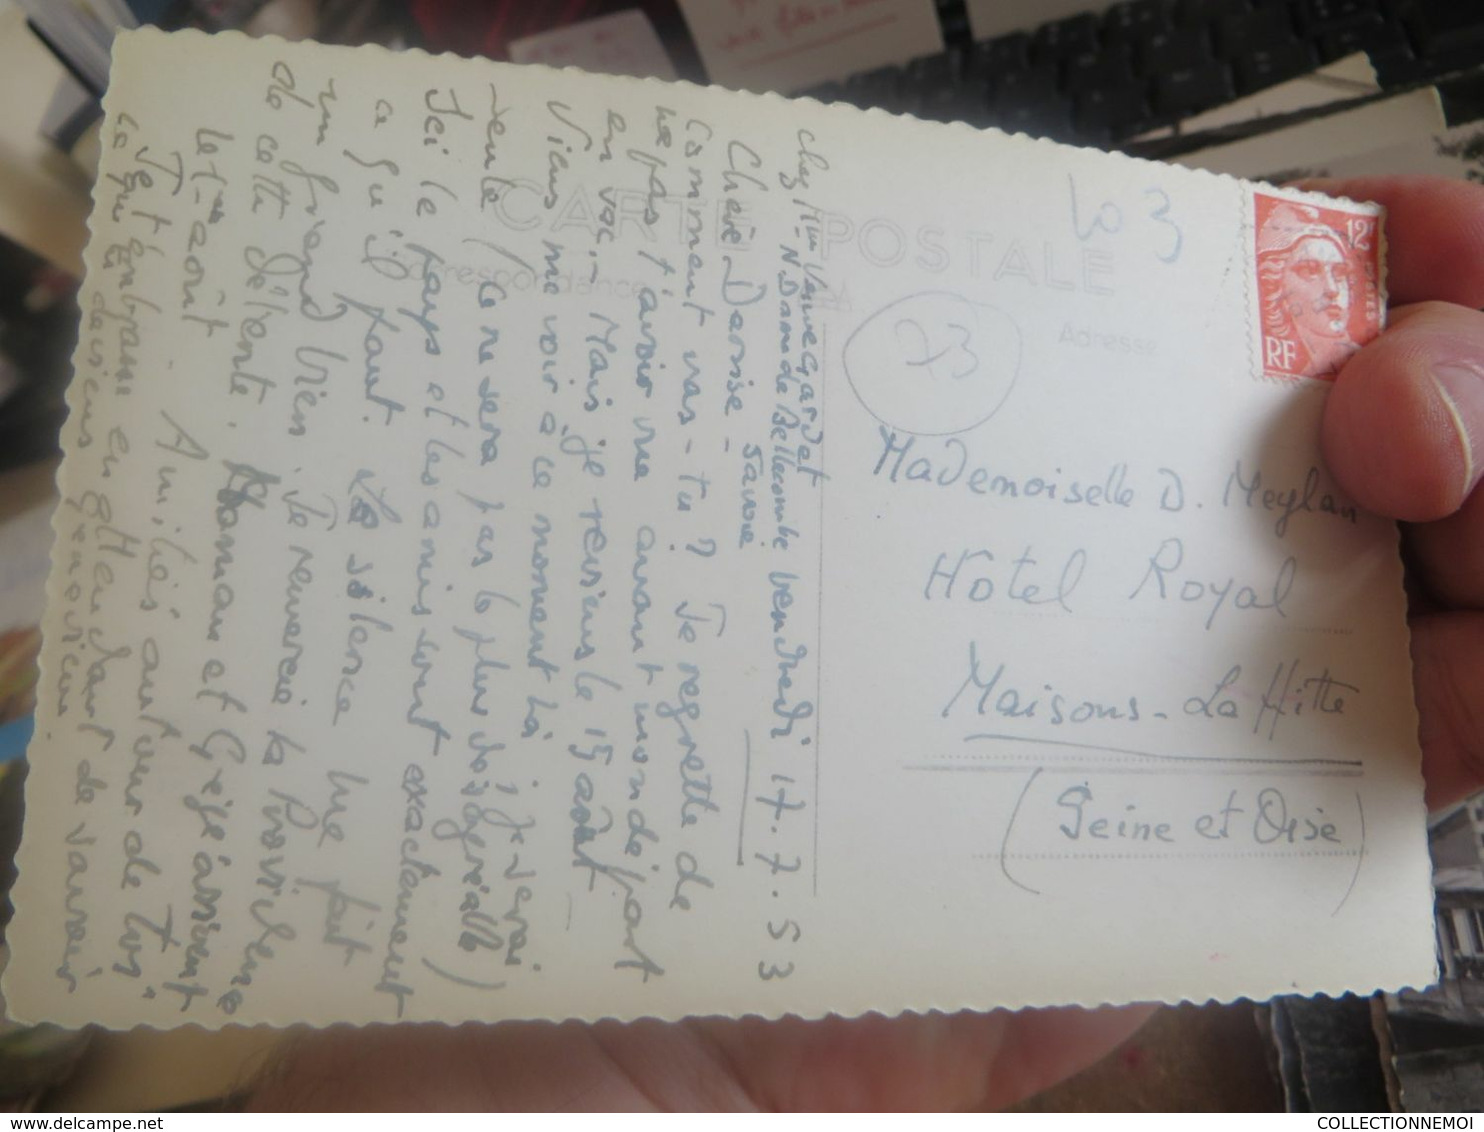 CARTE POSTALE
Correspondance
Adresse
chez Mme Veuve Gardet
N. Dame de Bellecombe vendredi 17.7.53
Savoie
Chère Danise -
Comment vas-tu ? Je regrette de
ne pas t'avoir vue avant mon départ
en vac. - Mais je reviens le 15 août -
Viens me voir à ce moment là ; je serai
seule (ce ne sera pas le plus désagréable)
Ici le pays et les amis sont exactement
ce qu'il faut. Le silence me fait
un grand bien. Je remercie la Providence
de cette détente. Maman et Gégé arrivent
le 1er août. Amitiés autour de Toi
Je t'embrasse en attendant de savoir
ce que deviens
Geneviève.
103
23
12F
RF
Mademoiselle D. Meylan
Hotel Royal
Maisons-La Hitte
(Seine et Oise)
COLLECTIONNEMOI